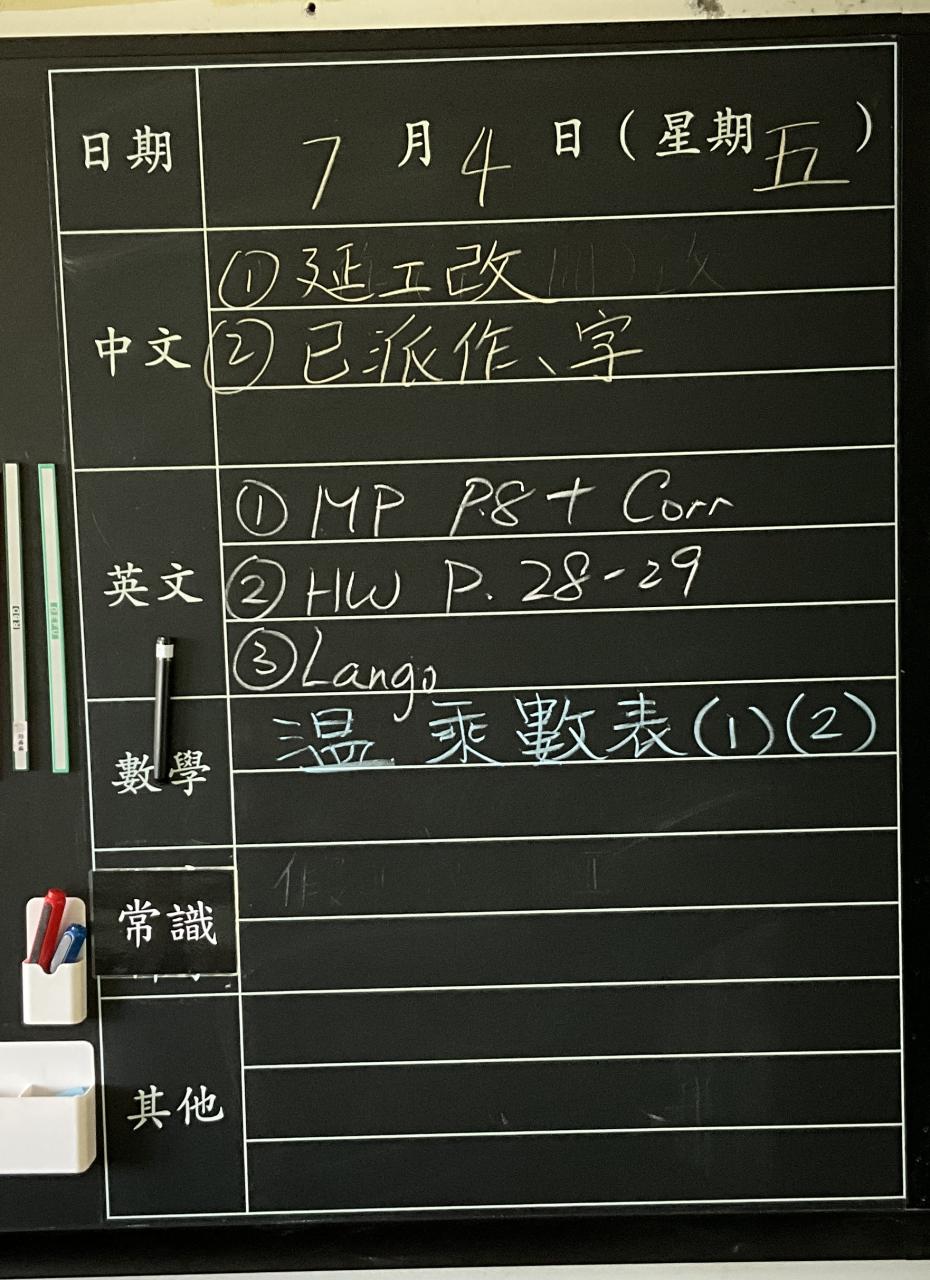 日期 7月4日(星期五)
中文
①延工改
②已派作、字
英文
① MP P.8 + Corr
② HW P. 28-29
③ Lango
數學
溫 乘數表(1)(2)
常識
其他